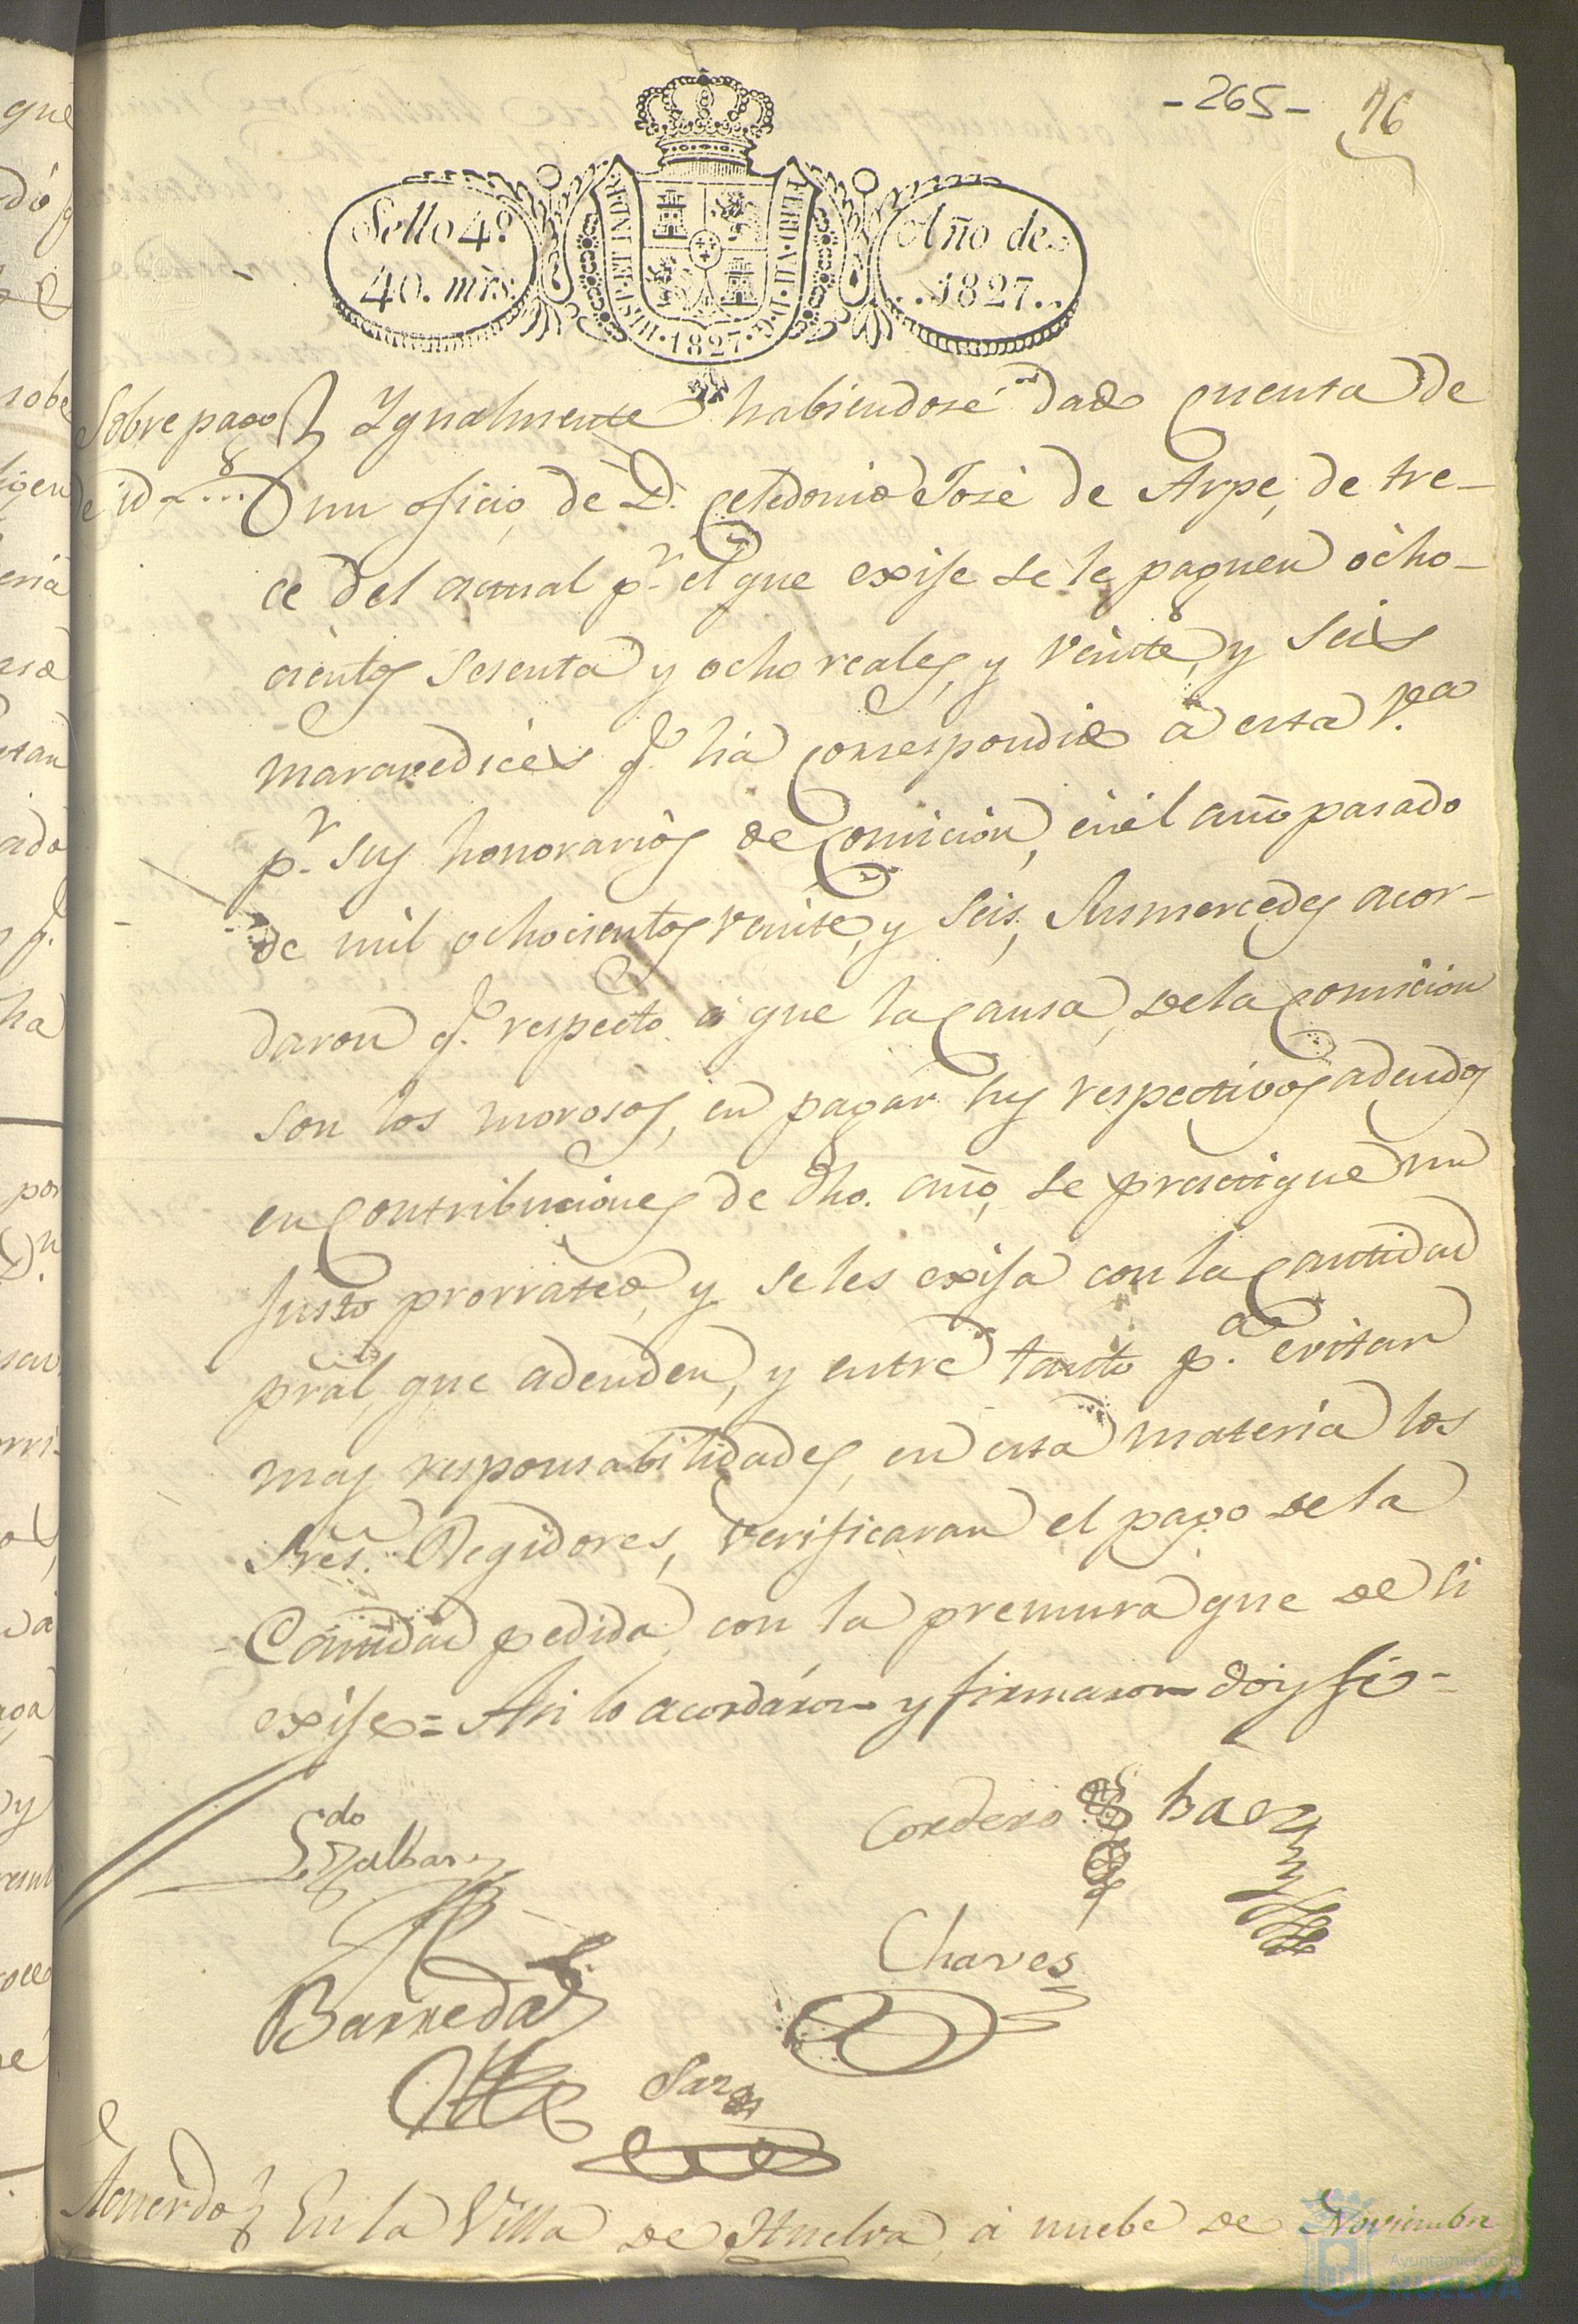 - 265 -
76
Sello 4º
40. mrs.
HISP. ET IND. R.
FERD. VII. D. G.
1827
Año de
..1827..
Sobre pago
de id....
Ygualmente habiendose dado Cuenta de
un oficio, de D. Celedonio José de Arpe, de tre-
ce del actual pr. el que exije se le paguen ocho-
cientos sesenta y ocho reales, y veinte, y seis
maravedices q. há Correspondido á esta Va.
pr. sus honorarios de Comicion, en el año pasado
de mil ochocientos veinte, y seis, Susmercedes acor-
daron q. respecto á que la Causa, dela Comicion
son los morosos, en pagar sus respectivos adeudos
en Contribuciones de dho. año, se practique un
justo prorrateo, y se les exija con la Cantidad
pral, que adeuden, y entre tanto pa. evitar
mas responsabilidades, en esta materia los
Sres. Regidores, verificaran el pago dela
Cantidad pedida, con la premura que de si
exije = Asi lo acordáron y firmaron doy fé -
Ldo
Cordero
Baez
Chaves
Barreda
Acuerdo
En la Villa de Huelva, á nuebe de Noviembre
Ayuntamiento de
HUELVA